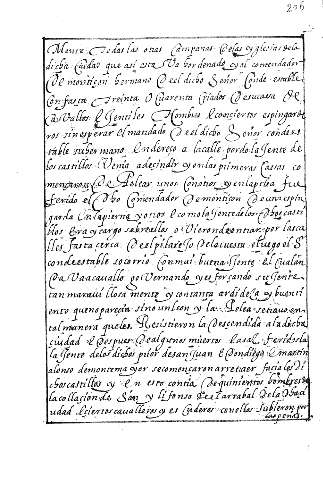 206
Mente todas las otras campanas de las yglesias de la
dicha ciudad que asi estava hordenado el comendador
de montiçon hermano del dicho Señor Condestable
con fasta treinta o cuarenta criados de su casa de
cavallos e gentiles hombres e con ciertos espingarde
ros sin esperar el mandado de el dicho Señor condes
table su hermano endereço a la calle por do la gente de
los castillos venia a decindir y en las primeras casas co
mençaron de pelear unos con otros y en la priesa fue
ferido el dicho Comendador de montiçon de una espin
garda en la pierna y otros e como la gente de los dos casti
llos era y cargo sobre ellos o vieron de entrar por las ca
lles fasta cerca de el pilarejo de la cuesta luego el S
condestable socorrio con mui buena gente el cual an
dava a cavallo governando y esforçando su gente
tan maravillosa mente y con tanto ardideza y buen ti
ento que no parecia sino un leon y la pelea se travo en
tal manera que les resistieron la descendida a la dicha
ciudad e despues de algunos muertos e asaz feridos la
la gente de los dichos pilar de san Juan e Don diego e martin
alonso de montemayor se començaron a retraer facia los di
chos castillos y en esto con fia de quinientos hombres de
la collacion de San yllifonso de el arrabal de la dha ciu
udad e ciertos cavalleros y escuderos con ellos subieron por
las peñas